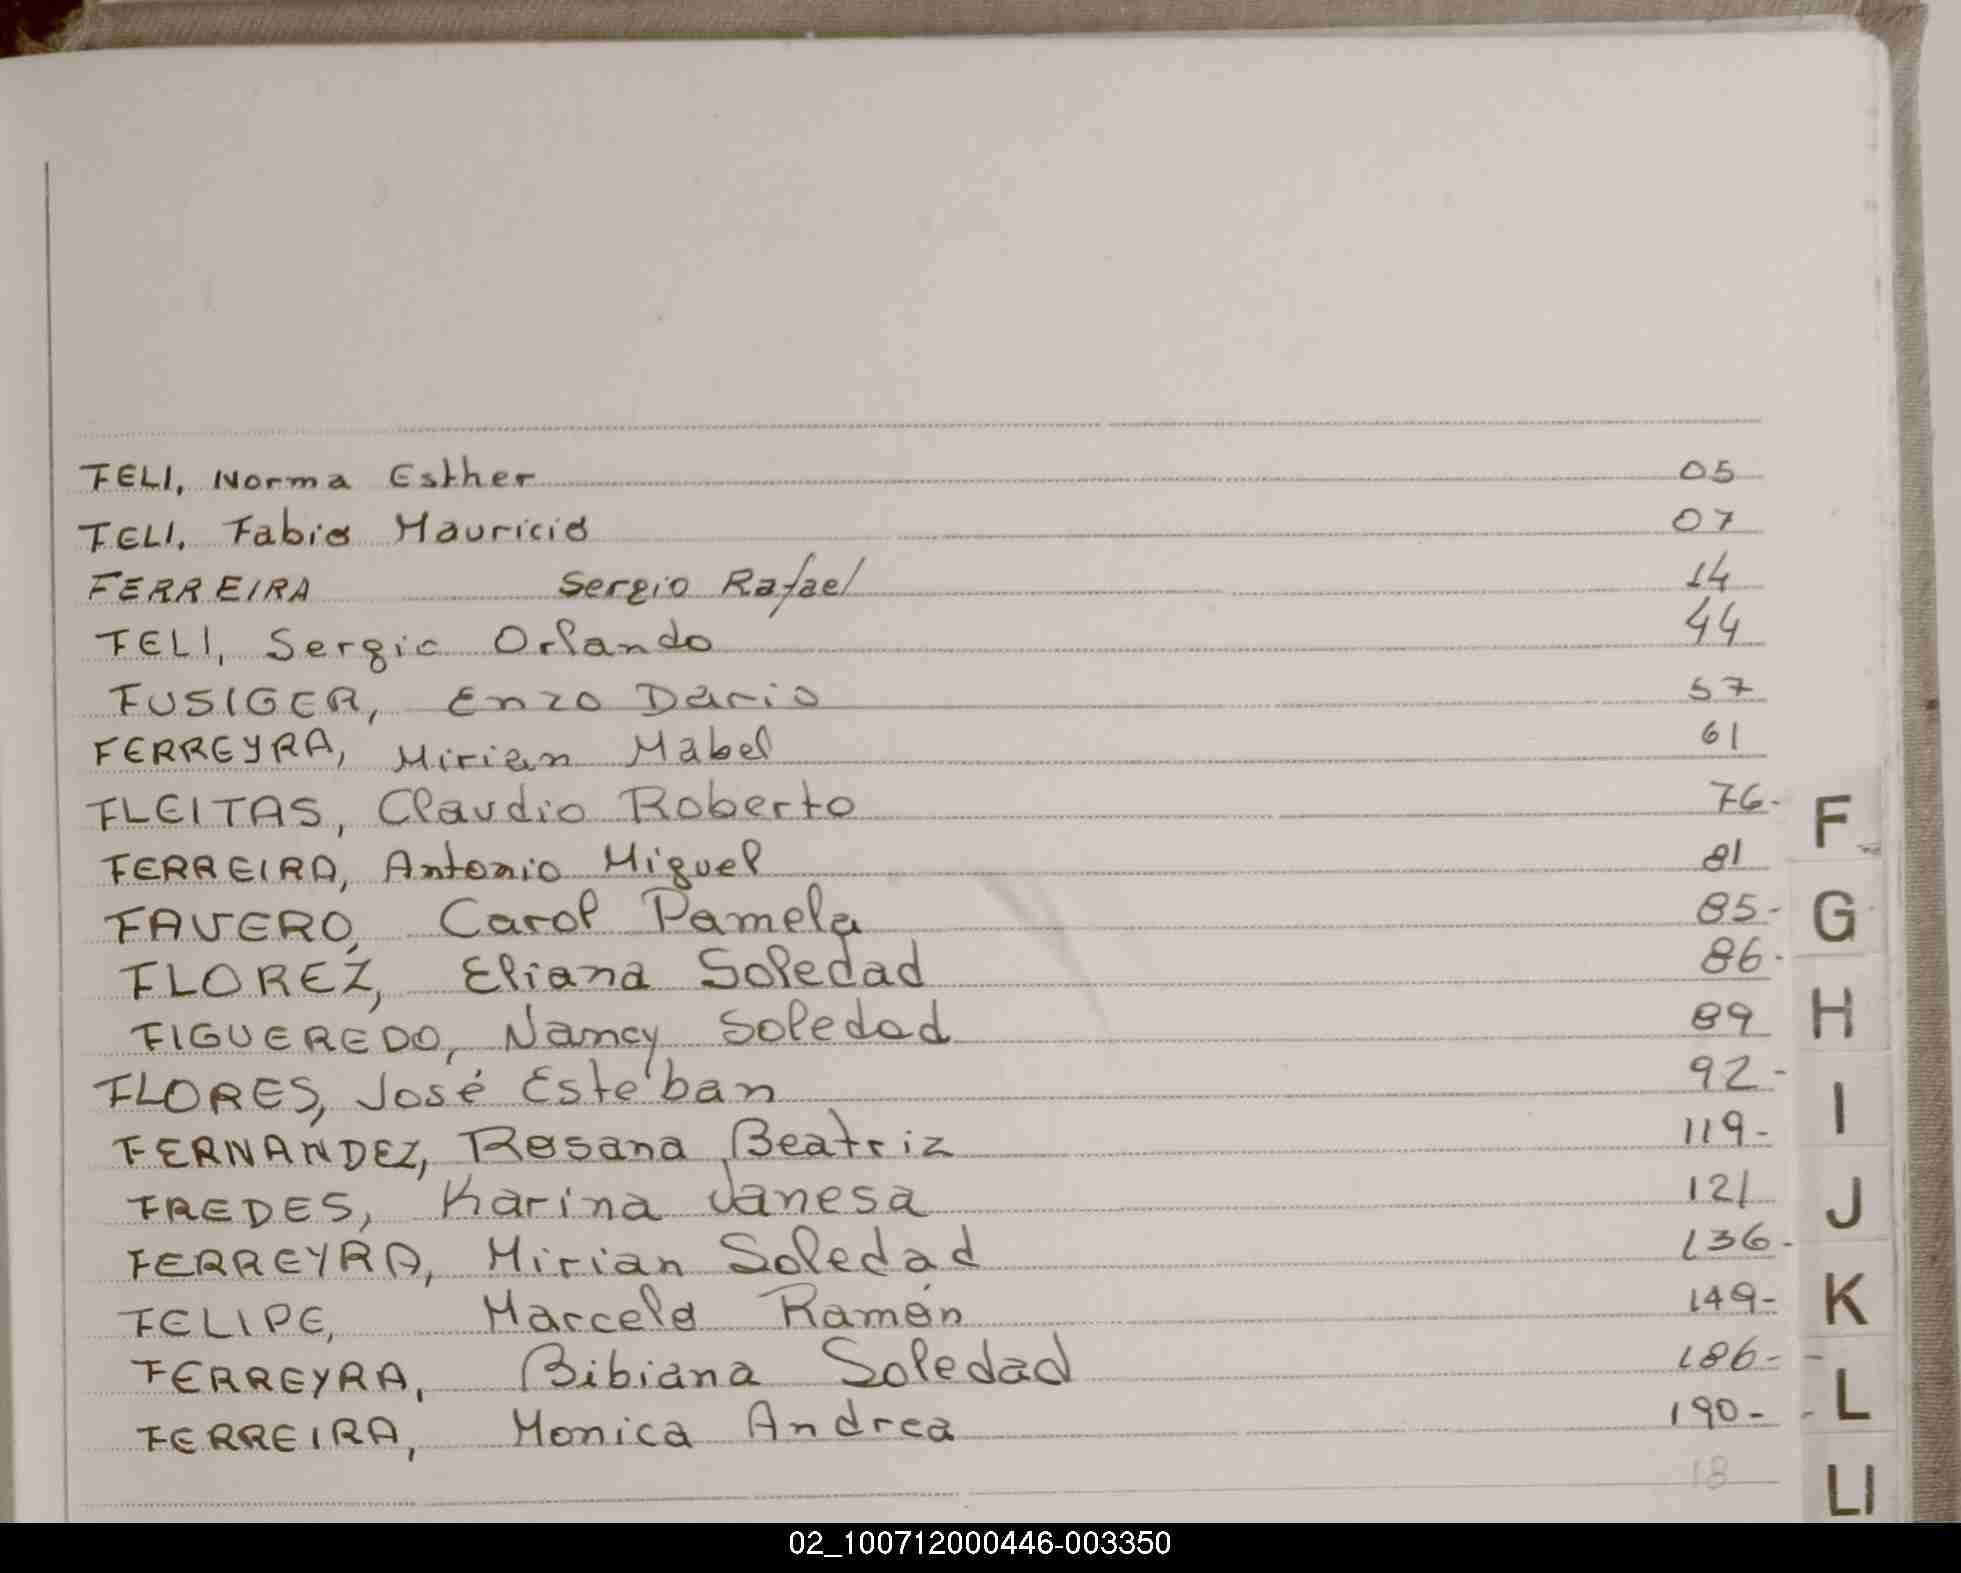 FELI, Norma Esther 05
FELI, Fabio Mauricio 07
FERREIRA Sergio Rafael 14
FELI, Sergio Orlando 44
FUSIGER, Enzo Dario 57
FERREYRA, Mirian Mabel 61
FLEITAS, Claudio Roberto 76-
FERREIRA, Antonio Miguel 81
FAVERO, Carol Pamela 85-
FLOREZ, Eliana Soledad 86-
FIGUEREDO, Nancy Soledad 89
FLORES, José Esteban 92-
FERNANDEZ, Rosana Beatriz 119-
FREDES, Karina Vanesa 121
FERREYRA, Mirian Soledad 136-
FELIPE, Marcelo Ramón 149-
FERREYRA, Bibiana Soledad 186-
FERREIRA, Monica Andrea 190-
18
F
G
H
I
J
K
L
LI
02_100712000446-003350